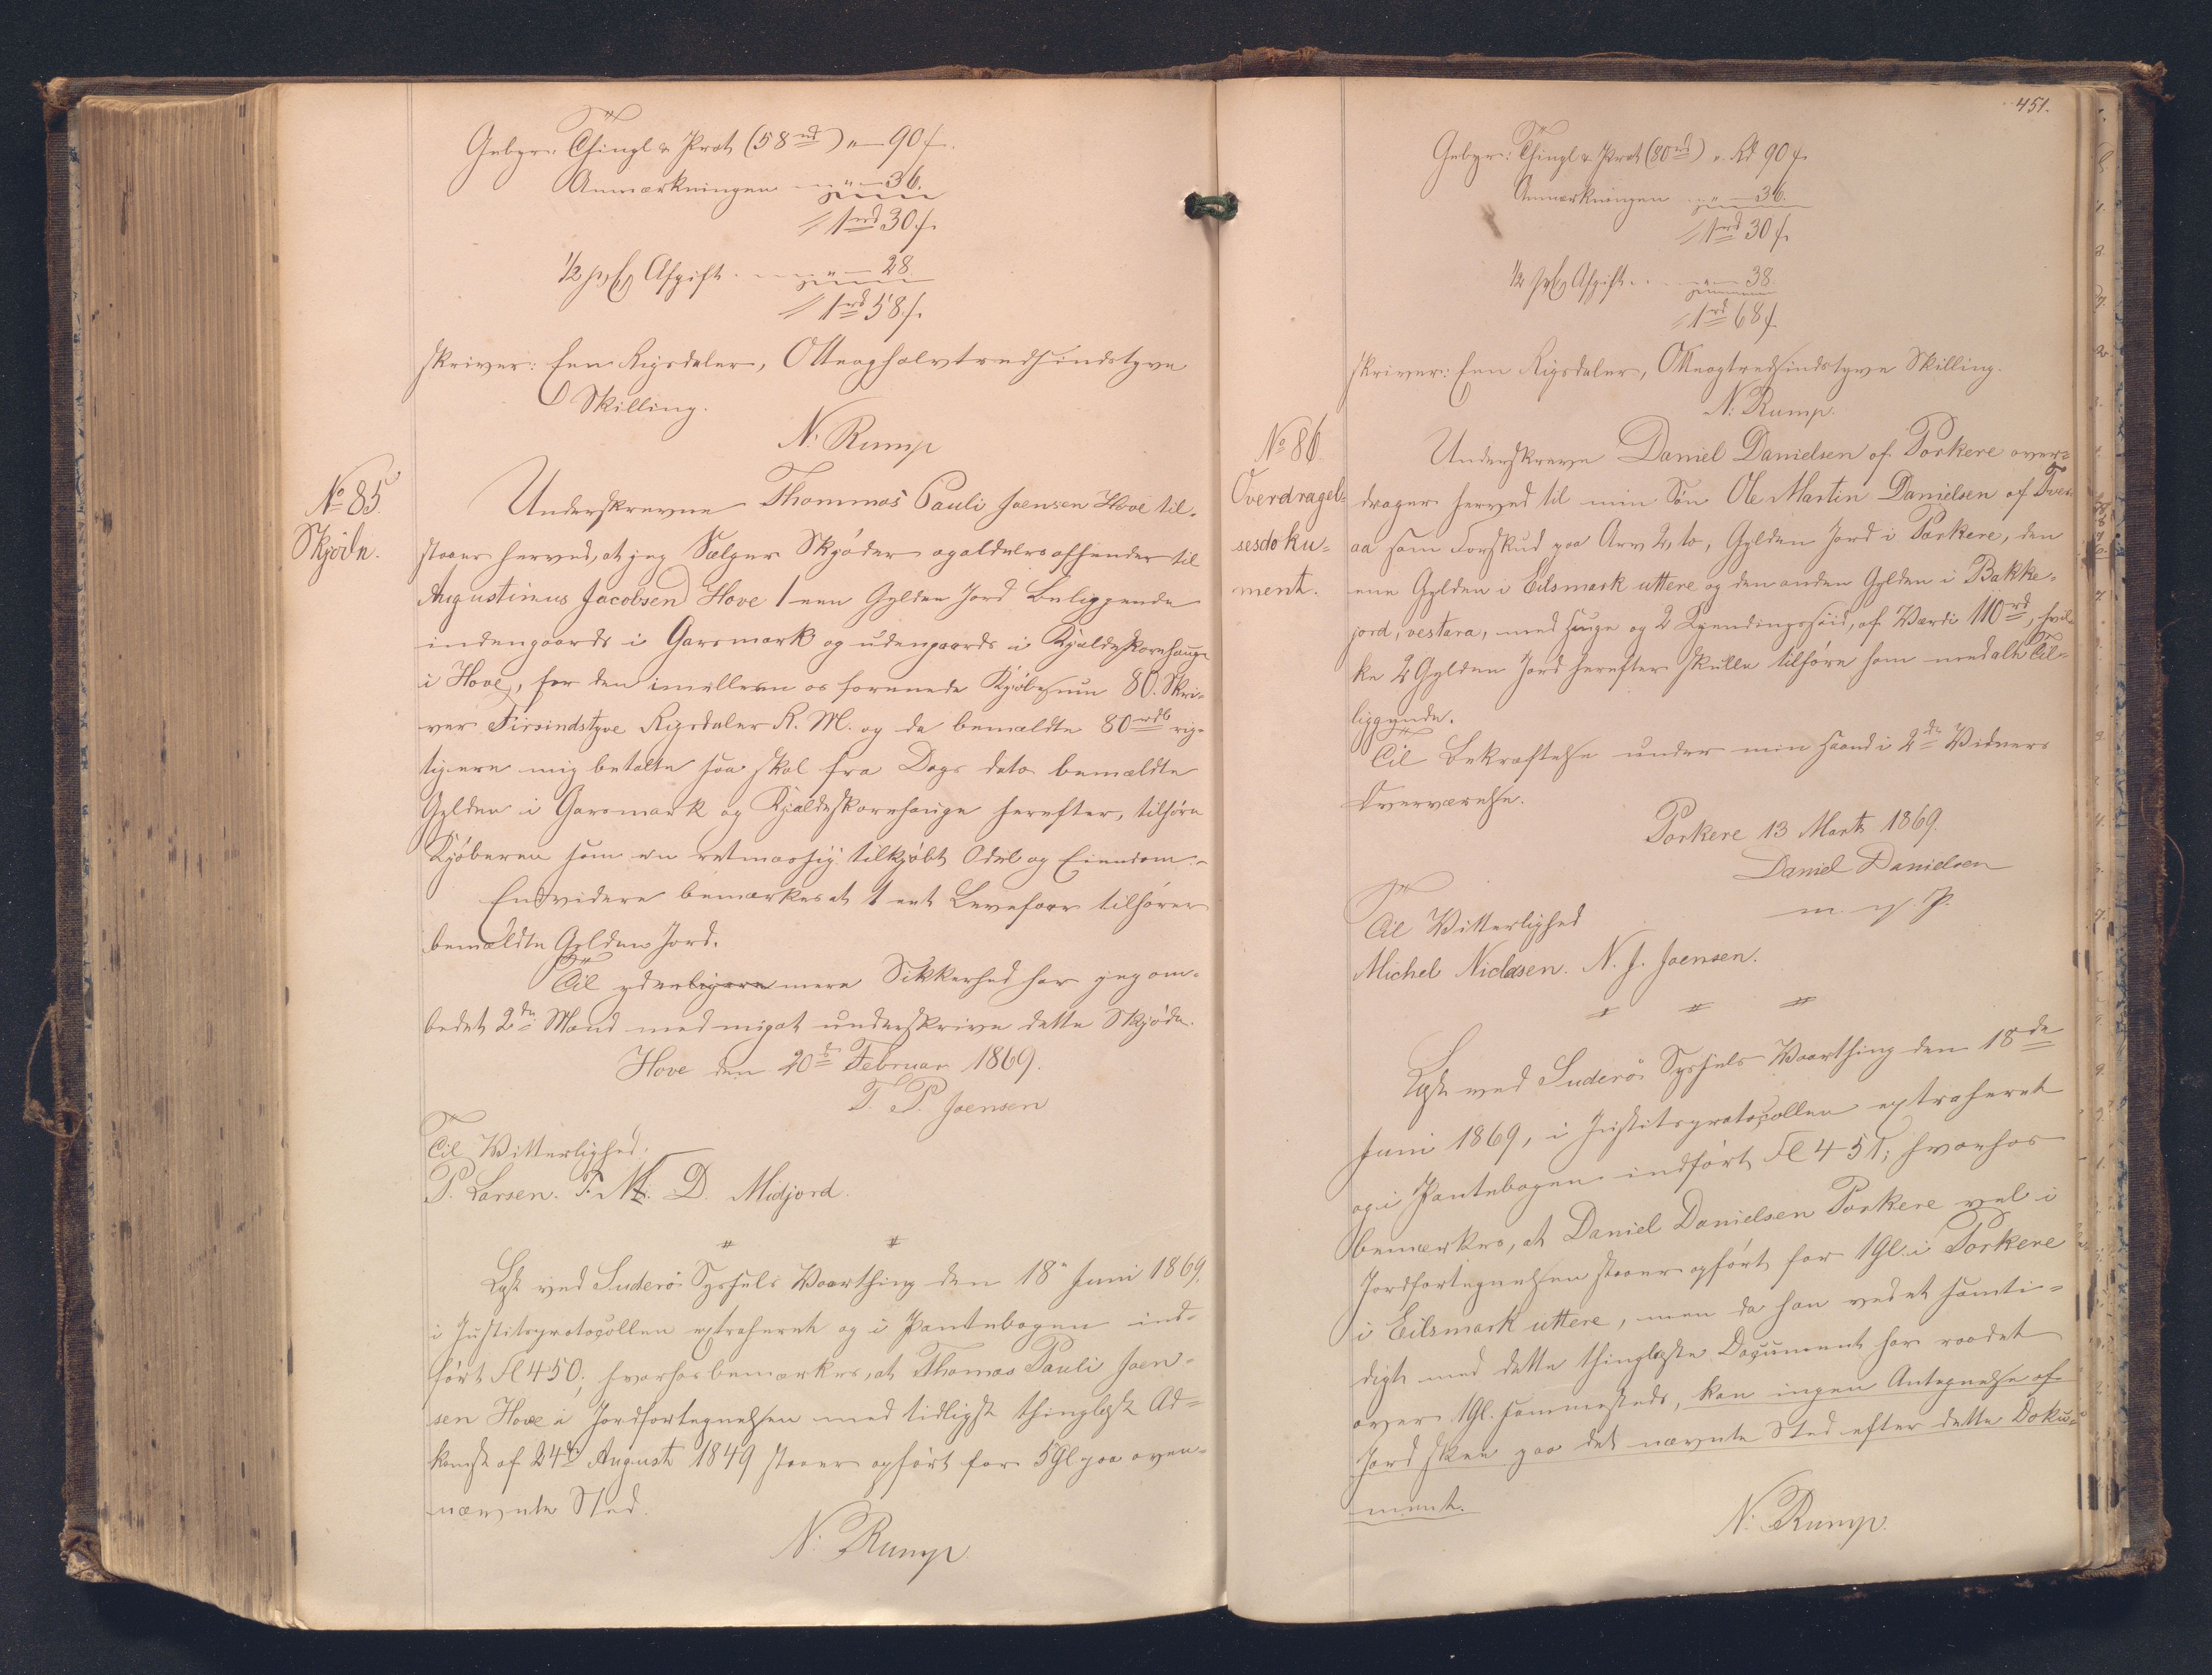 Gebyr: Thingl & Prot (58rd) " — 90 f.
Anmærkningen — " — 36.
1rd 30 f.
1/2 pCt Afgift — " — 28.
1rd 58 f.
skriver: Een Rigsdaler, Otteoghalvtredsindstyve
Skilling.
N. Rump
No 85.
Skjøde.
Underskrevne Thommas Pauli Joensen Hove til-
staaer herved, at jeg Sælger Skjøder og aldeles afhender til
Augustinus Jacobsen Hove 1 een Gylden Jord Beliggende
indengaards i Garsmark og udengaards i Kjeldeskorahauge
i Hove, for den imellem os forenede Kjøbesum 80. Skri-
ver Firsindstyve Rigsdaler R. M. og da bemældte 80rdl rig-
tig ere mig betalte saa skal fra Dags dato bemældte
Gylden i Garsmark og Kjældeskorahauge herefter, tilhøre
Kjøberen som en retmæssig tilkjøbt Odel og Eiendom.
Endvidere bemærkes at 1 eet Levefaar tilhører
bemældte Gylden Jord.
Til yderligere mere Sikkerhed har jeg om-
bedet 2de Mænd med mig at underskrive dette Skjøde.
Hove den 20de Februar 1869.
T. P. Joensen
Til Vitterlighed:
P. Larsen. T. M. D. Midjord.
Lyst ved Suderø Syssels Vaarthing den 18" Juni 1869,
i Justitsprotocollen extraheret og i Pantebogen ind-
ført Fl 450; hvorhos bemærkes, at Thomas Pauli Joen-
sen Hove i Jordfortegnelsen med tidligst thinglyst Ad-
komst af 24de August 1849 staaer opført for 5 Gl paa oven-
nævnte Sted.
N. Rump
451.
Gebyr: Thingl & Prot (80rd) " Rd 90 f.
Anmærkningen — " — 36.
1rd 30 f.
1/2 pCt Afgift — " — 38
1rd 68 f.
skriver: Een Rigsdaler, Otteogtredsindstyve Skilling.
N. Rump.
No 86.
Overdragel-
sesdoku-
ment.
Underskrevne Daniel Danielsen af Porkere over-
drager herved til min Søn Ole Martin Danielsen af Tver-
aa som Forskud paa Arv 2, to, Gylden Jord i Porkere, den
ene Gylden i Eilsmark uttere og den anden Gylden i Bakke-
jord, vestara, med Hauge og 2 Kjendingsseid, af Værdi 110rd, hvil-
ke 2 Gylden Jord herefter skulle tilhøre ham med alt Til-
liggende.
Til Bekræftelse under min Haand i 2de Vidners
Overværelse.
Porkere 13 Marts 1869.
Daniel Danielsen
m. f. P.
Til Vitterlighed
Michel Niclasen. N. J. Joensen.
Lyst ved Suderø Syssels Vaarthing den 18de
Juni 1869, i Justitsprotocollen extraheret
og i Pantebogen indført Fl 451; hvorhos
bemærkes, at Daniel Danielsen Porkere vel i
Jordfortegnelsen staaer opført for 1 Gl. i Porkere
i Eilsmark uttere, men da han ved et samti-
digt med dette thinglyste Document har raadet
over 1 Gl. sammesteds, kan ingen Antegnelse af
Jord skee paa det nævnte Sted efter dette Doku-
ment.
N. Rump.